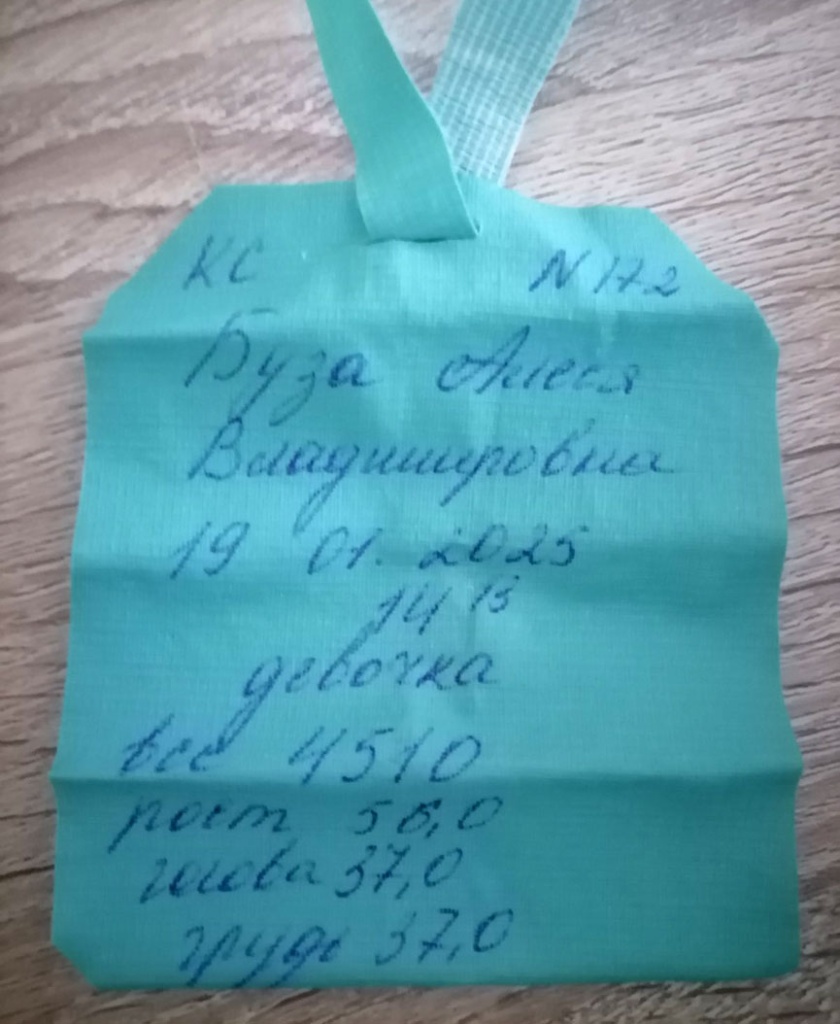 КС N 172
Буза Алеся
Владимировна
19 01. 2025
14 13
девочка
вес 4510
рост 56,0
голова 37,0
грудь 37,0